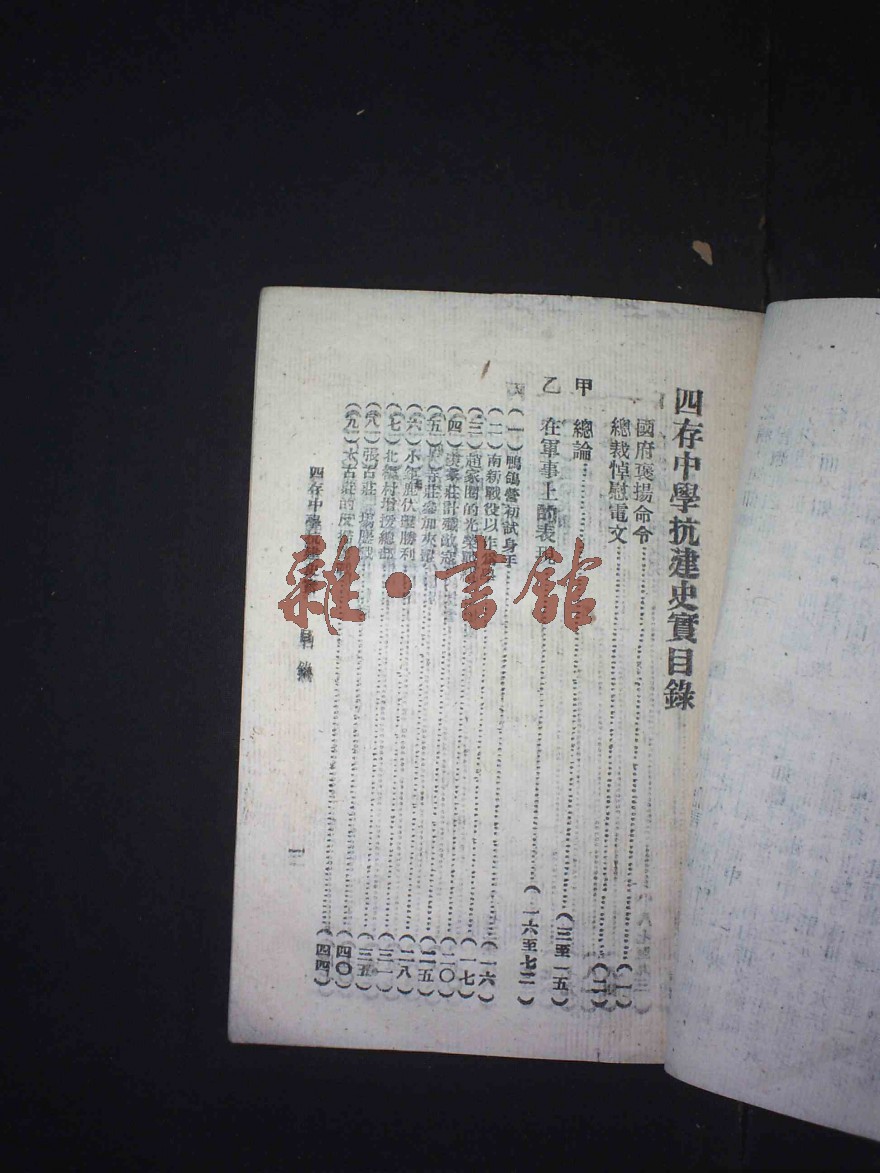 四存中學抗建史實目錄
國府褒揚命令……(一)
總裁悼慰電文……(二)
甲 總論……(三至一五)
乙 在軍事上的表現……(一六至七三)
(一)鴨鴿營初試身手……(一六)
(二)南新戰役以作……(一七)
(三)趙家圈的光榮戰……(二〇)
(四)家莊計殲敵寇……(二五)
(五)莊參加夾……(二八)
(六)小鹿伏襲勝利……(三一)
(七)北村增援總部……(三五)
(八)張古莊一場鏖戰……(四〇)
(九)太古莊的反掃……(四四)
四存中學 目錄
一
雜·書館